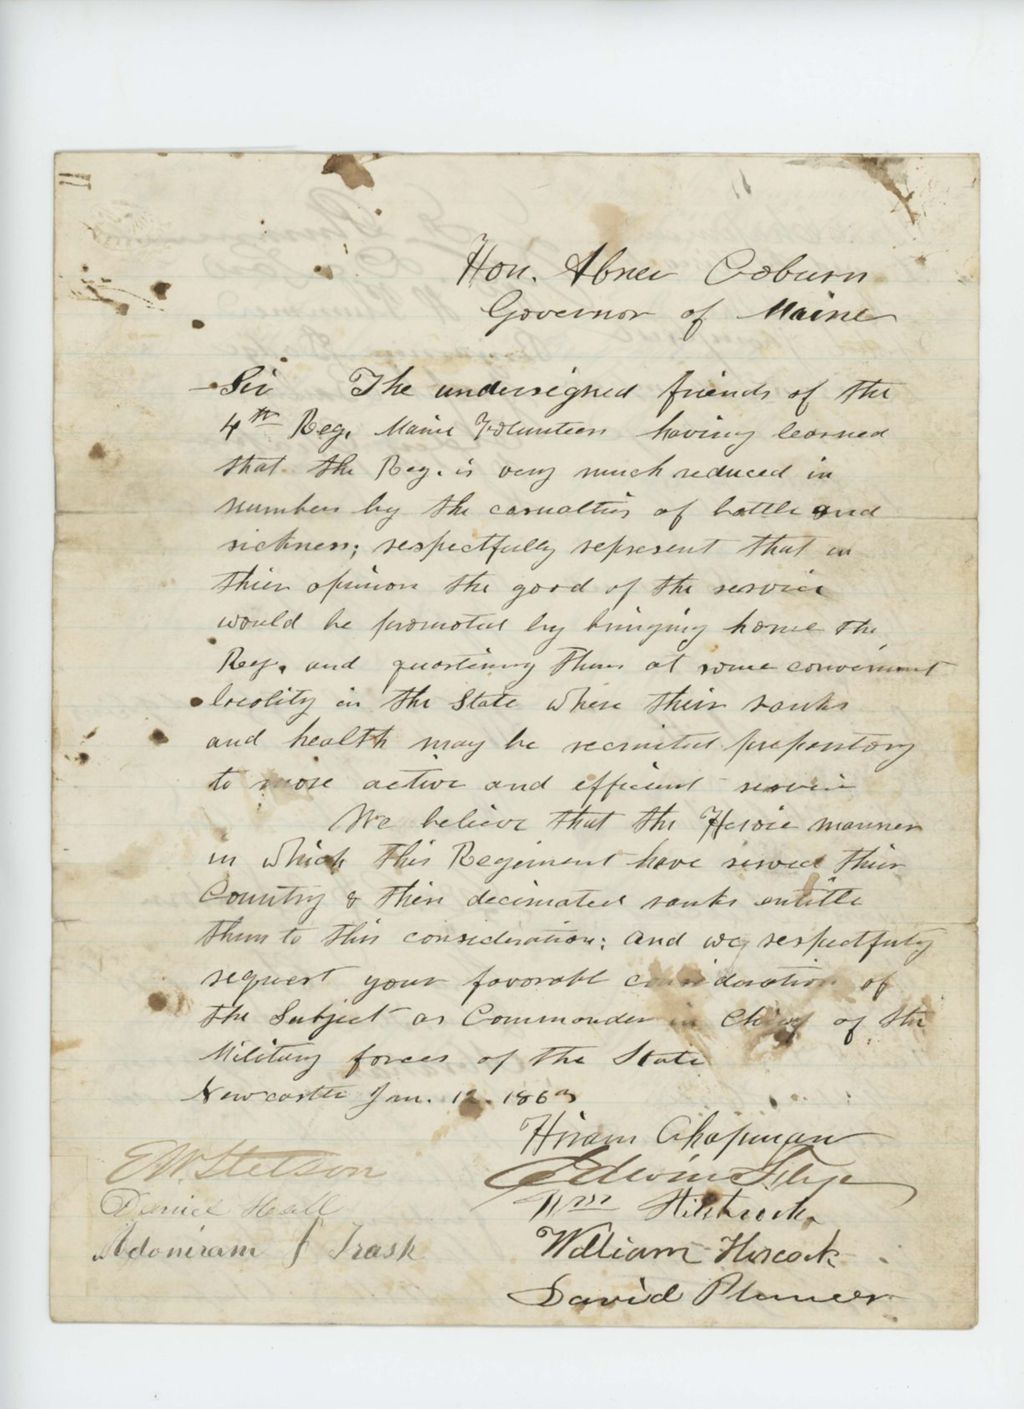 Hon. Abner Coburn
Governor of Maine
Sir The undersigned friends of the
4th Reg. Maine Volunteers having learned
that the Reg. is very much reduced in
numbers by the casualties of battle and
sickness; respectfully represent that in
thier opinion the good of the service
would be promoted by bringing home the
Reg. and quartering them at some convenient
locality in the State where their ranks
and health may be recruited prepartory
to more active and efficient service
We believe that the Heroic manner
in which this Regiment have served their
Country & their decimated ranks entitle
them to this consideration: and we respectfuly
request your favorable consideration of
the Subject as Commander in Chief of the
Military forces of the State
Newcastle Jan. 12. 1863
Hiram Chapman
E W Stetson
Edwin Flye
Daniel Hall
Wm
Adoniram J Trask
William Hiscock
David Plumer